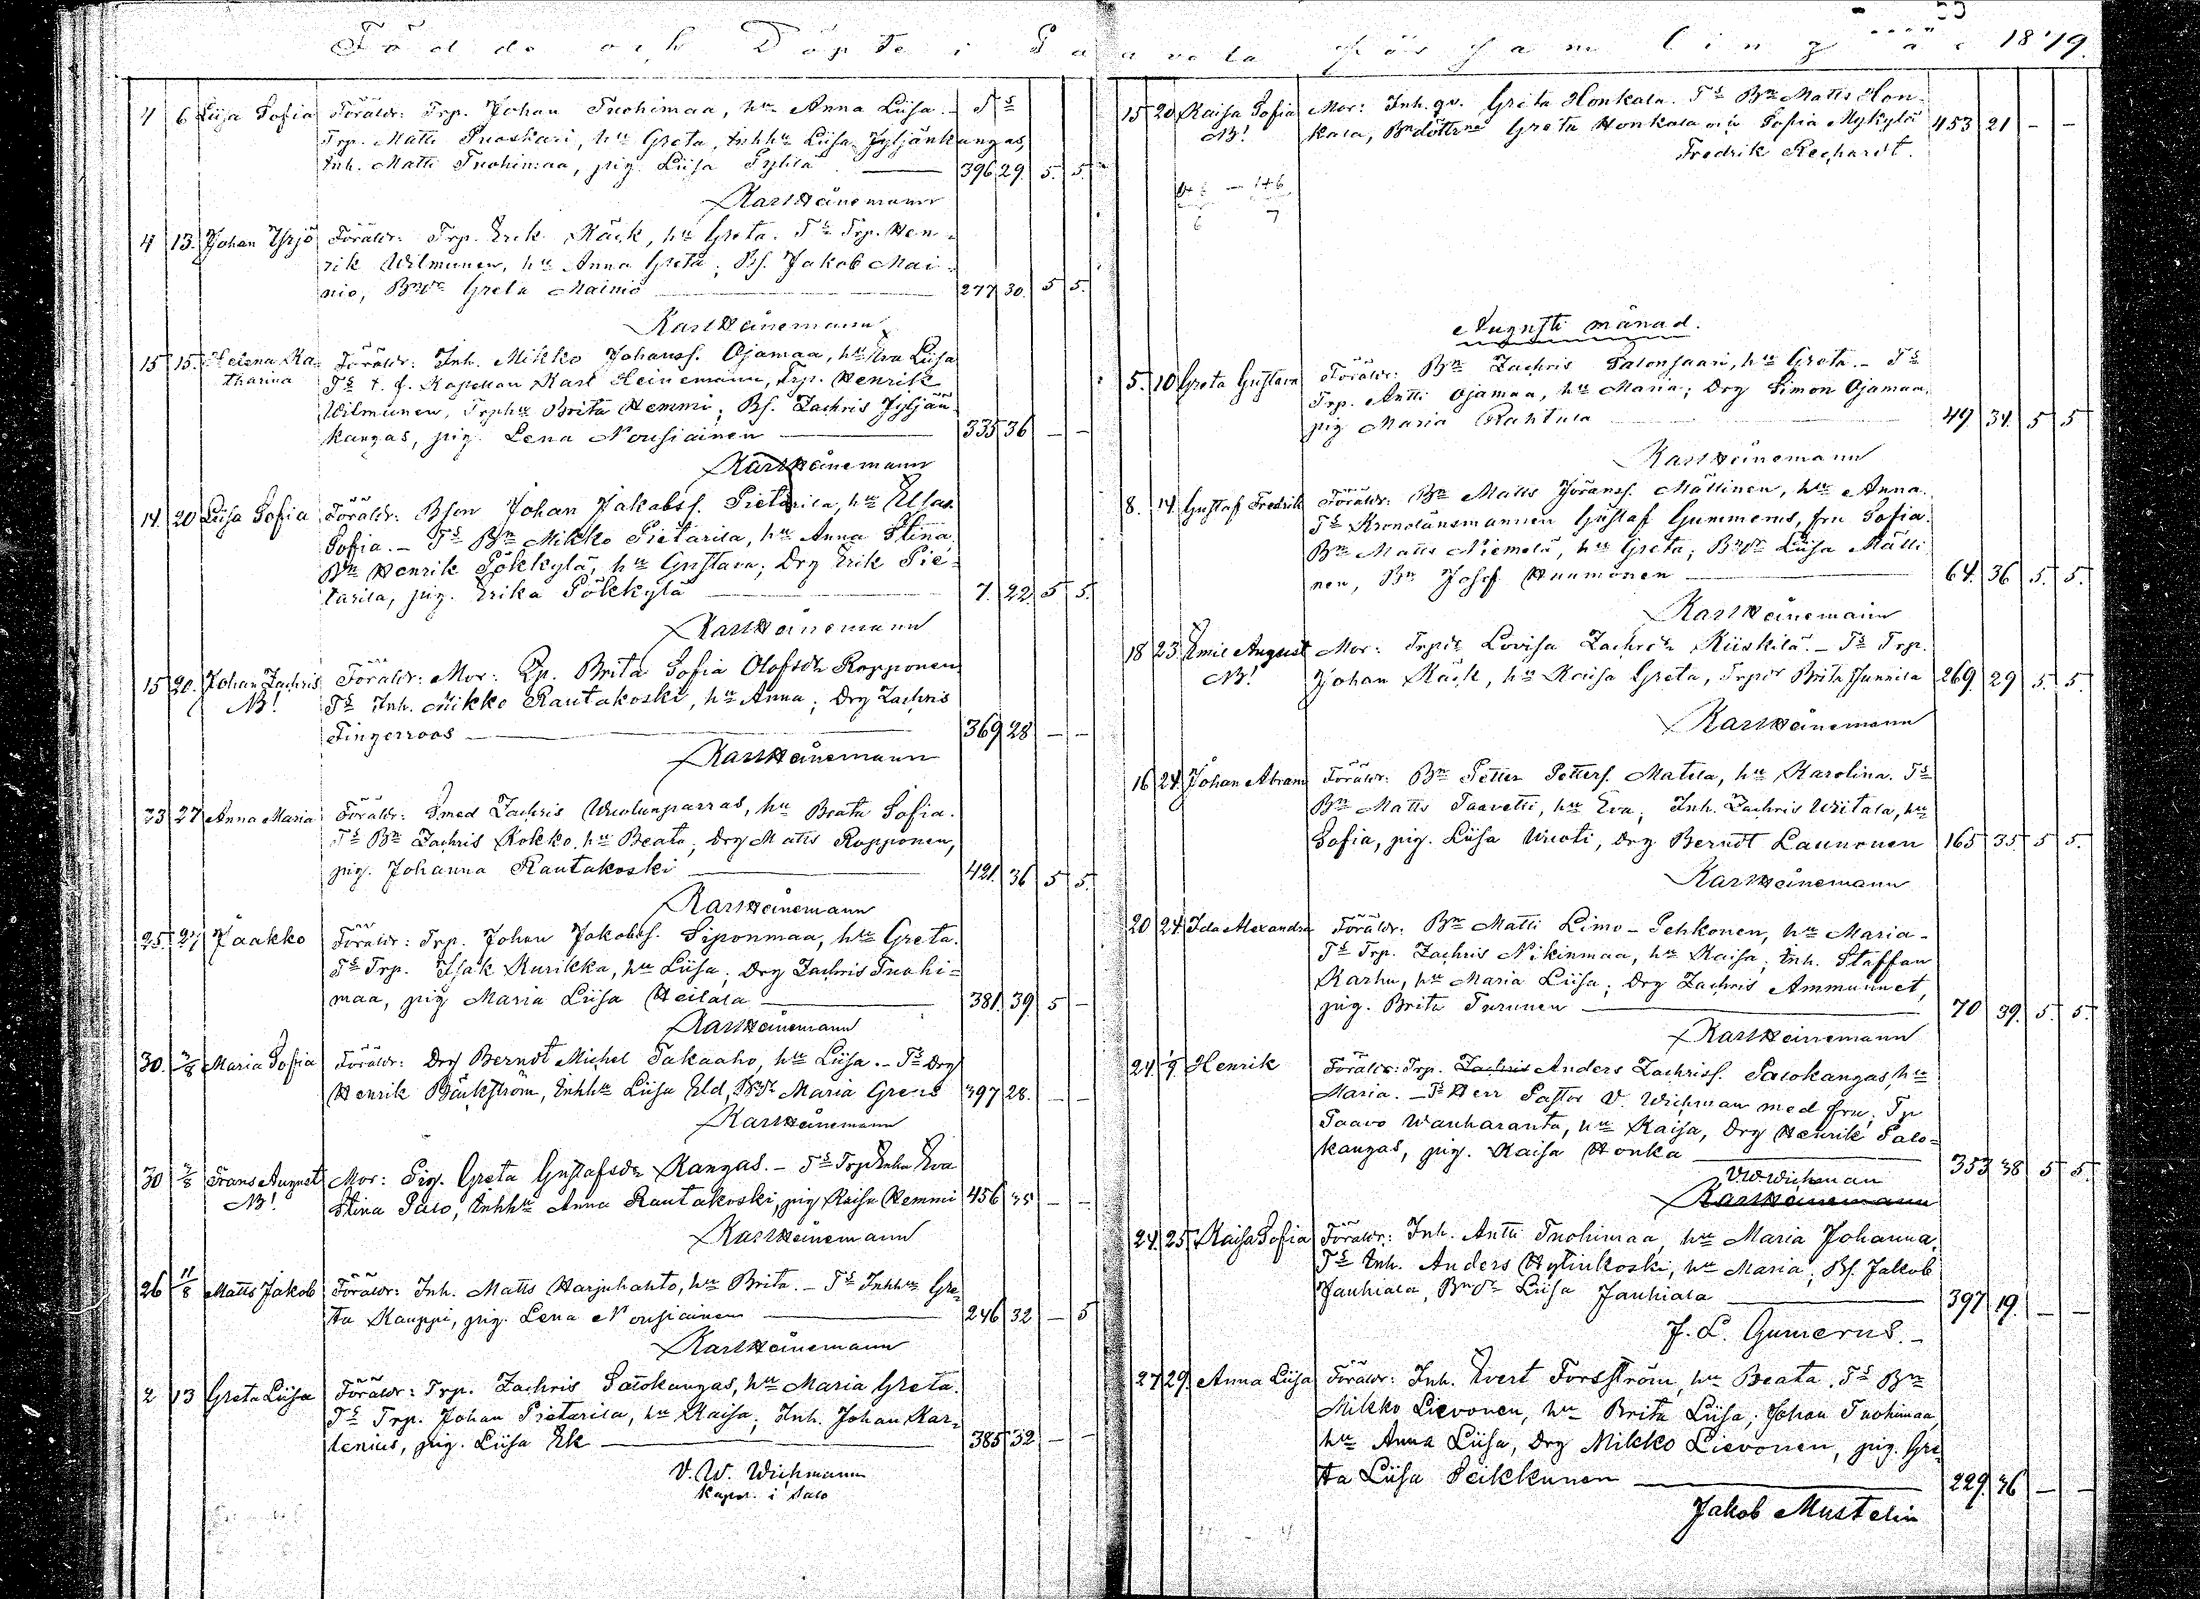 Födde och Döpte i Paavola församling år 1879.
4 6 Liisa Sofia Föräldr: Trp. Johan Tuohimaa, hu Anna Liisa. - Ts
Trp. Matti Ruoskari, hu Greta, Inhhu Liisa Jyljänkangas,
Inh. Matti Tuohimaa, pig. Liisa 396 29. 5. 5.
Karl Heinemann
4 13. Johan Yrjö Föräldr: Trp. Erik Räck, hu Greta. Ts Trp. Hen-
rik Wilmunen, hu Anna Greta; Bs. Jakob Mai-
nio, Bndr Greta Mainio 277 30. 5 5.
Karl Heinemann
15 15. Helena Ka- Föräldr: Inh. Mikko Johanss. Ojamaa, hu Eva Liisa
tharina Ts t. f. Kapellan Karl Heinemann, Trp. Henrik
Wilmunen, Trphu Brita Hemmi; Bs. Zachris Jyljän-
kangas, pig. Lena Nousiainen 335 36 — —
Karl Heinemann
14 20 Liisa Sofia Föräldr: Bson Johan Jakobss. Pietarila, hu Ulla
Sofia. - Ts Bn Mikko Pietarila, hu Anna Stina
Bn Henrik Pökkylä, hu Gustava; Drg Erik Pie-
tarila, pig. Erika Pökkylä 7. 22. 5 5.
Karl Heinemann
15 20. Johan Zachris Föräldr: Mor: Brita Sofia Olofsdr Ropponen
NB! Ts Inh. Mikko Rautakoski, hu Anna; Drg Zachris
Fingerroos 369 28 — —
Karl Heinemann
23 27 Anna Maria Föräldr: Smed Zachris Wuolunparras, hu Beata Sofia.
Ts Bn Zachris Kokko, hu Beata; Drg Matts Ropponen,
pig. Johanna Rautakoski 421. 36 5 5.
Karl Heinemann
25 27 Jaakko Föräldr: Trp. Johan Jakobss. Siponmaa, hu Greta.
Ts Trp. Isak Kurikka, hu Liisa; Drg Zachris Tuohi-
maa, pig Maria Liisa Heilala 381. 39 5 —
Karl Heinemann
30. 3/8 Maria Sofia Föräldr: Drg Berndt Michel Takaaho, hu Liisa. - Ts Drg
Henrik Bäckström, Inhhu Liisa Eld, Bndr Maria Grens 397 28. — —
Karl Heinemann
30 3/8 Frans August Mor: Pig. Greta Gustafsdr Kangas. - Ts Trpenka Eva
NB! Stina Palo, Inhhu Anna Rautakoski, pig Kaisa Hemmi 456 35 — —
Karl Heinemann
26 11/8 Matts Jakob Föräldr: Inh. Matts Harjuhahto, hu Brita. - Ts Inhhu Gre-
ta Kauppi, pig. Lena Nousiainen 246 32 — 5
Karl Heinemann
2 13 Greta Liisa Föräldr: Trp. Zachris Salokangas, hu Maria Greta.
Ts Trp. Johan Pietarila, hu Kaisa; Inh. Johan Kar-
lenius, pig. Liisa Ek 385 32 — —
V. W. Wichmann
Kapel. i Salo
15 20 Kaisa Sofia Mor: Inh. qv. Greta Honkala. Ts Bn Matts Hon-
NB! kala, Bndöttrna Greta Honkala och Sofia Mykylä 453 21 — —
Fredrik Rechardt.
Augusti månad.
5. 10 Greta Gustava Föräldr: Bn Zachris Salonsaari, hu Greta. - Ts
Trp. Antti Ojamaa, hu Maria; Drg Simon Ojamaa,
pig Maria Rahtula 49 34. 5 5
Karl Heinemann
8. 14. Gustaf Fredrik Föräldr: Bn Matts Jöranss. Mällinen, hu Anna.
Ts Kronolänsmannen Gustaf Gummerus, fru Sofia.
Bn Matts Niemelä, hu Greta; Bndr Liisa Mälli-
nen, Bn Josef Huumonen 64. 36 5. 5.
Karl Heinemann
18 23 Emil August Mor: Trpdr Lovisa Zachrdr Kiiskilä. - Ts Trp.
NB! Johan Räck, hu Kaisa Greta, Trpdr Brita Junnila 269. 29 5. 5.
Karl Heinemann
16 24. Johan Abram Föräldr: Bn Petter Petterss. Matila, hu Karolina. Ts
Bn Matts Taavetti, hu Eva; Inh. Zachris Writala, hu
Sofia, pig. Liisa Wuoti, Drg Berndt Launonen 165 35 5 5.
Karl Heinemann
20 24. Ida Alexandra Föräldr: Bn Matti Limo-Pehkonen, hu Maria -
Ts Trp. Zachris Nikinmaa, hu Kaisa; Inh. Staffan
Karhu, hu Maria Liisa; Drg Zachris Ammunnet,
pig. Brita Turunen 70 39. 5. 5.
Karl Heinemann
24 1/9 Henrik Föräldr: Trp. Zachris Anders Zachriss. Salokangas, hu
Maria. - Ts Herr Pastor V. Wichman med fru; Tp
Paavo Wanharanta, hu Kaisa, Drg Henrik Salo-
kangas, pig. Kaisa Honka 353 38 5 5.
V.W. Wichman
Karl Heinemann
24. 25 Kaisa Sofia Föräldr: Inh. Antti Tuohimaa, hu Maria Johanna.
Ts Inh. Anders Hylinkoski, hu Maria; Bs. Jakob
Jauhiala, Bndr Liisa Jauhiala 397 19. — —
J. L. Gumerus. -
27 29. Anna Liisa Föräldr: Inh. Evert Forsström, hu Beata. Ts Bn
Mikko Lievonen, hu Brita Liisa; Johan Tuohimaa,
hu Anna Liisa, Drg Mikko Lievonen, pig. Gre-
ta Liisa Peikkunen 229. 36 — —
Jakob Mustelin